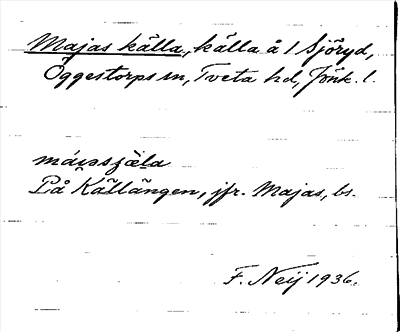 Majas källa, källa å 1 Sjöryd,
Öggestorps sn, Tveta hd, Jönk. l.
På Källängen, jfr. Majas, bs.
F. Neij 1936.